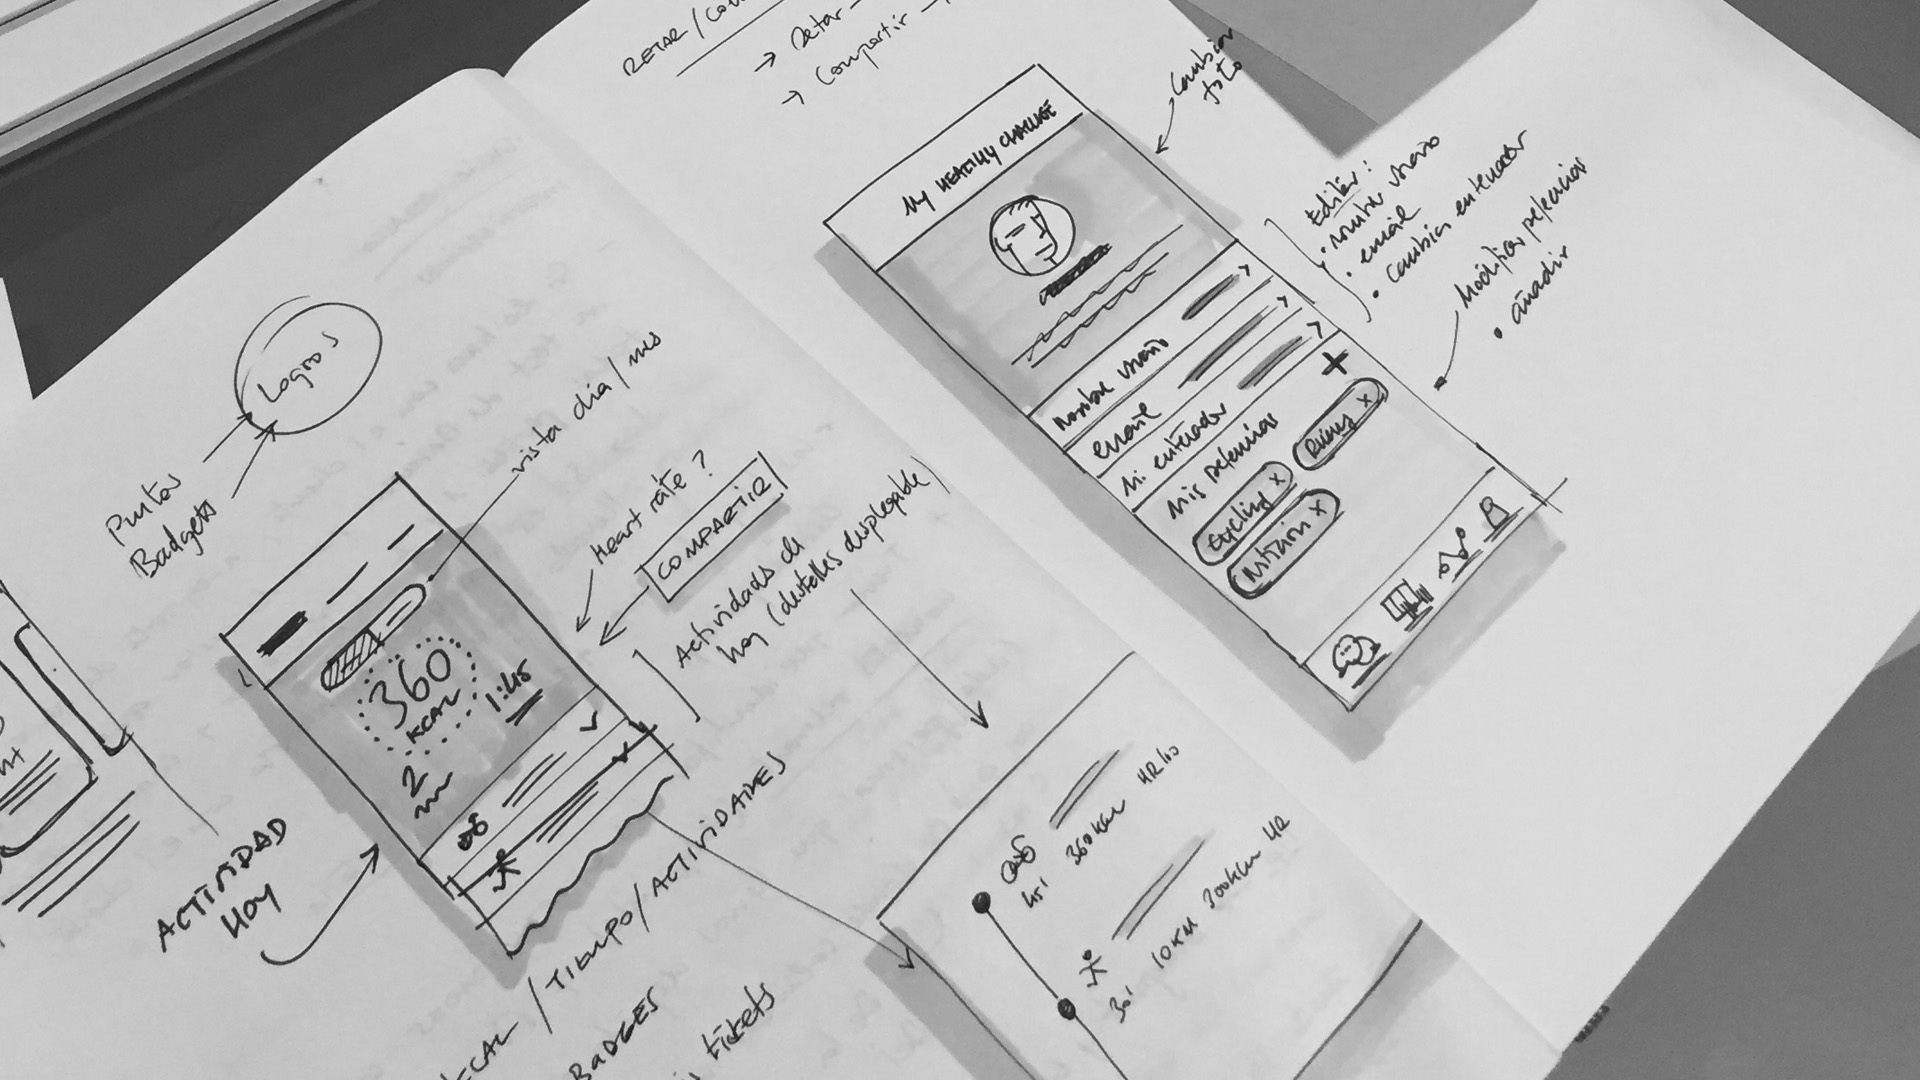 RETAR /
→ Retar →
→ Compartir →
Logros
Puntos
Badgets
vista dia / mes
Heart rate ?
COMPARTIR
Actividades de
hoy (detalles desplegable)
360
KCAL
1:45
2
ACTIVIDAD
HOY
KCAL / TIEMPO / ACTIVIDADES
BADGES
tickets
MY HEALTHY CHALLENGE
Nombre usuario
email
Mi entrenador
Mis preferencias
+
Running x
Cycling x
Nutrición x
Cambiar
foto
Editar :
• nombre usuario
• email
• cambiar entrenador
Modificar preferencias
• añadir
45'
360 Kcal
HR 140
30'
10 KM
300 Kcal
HR